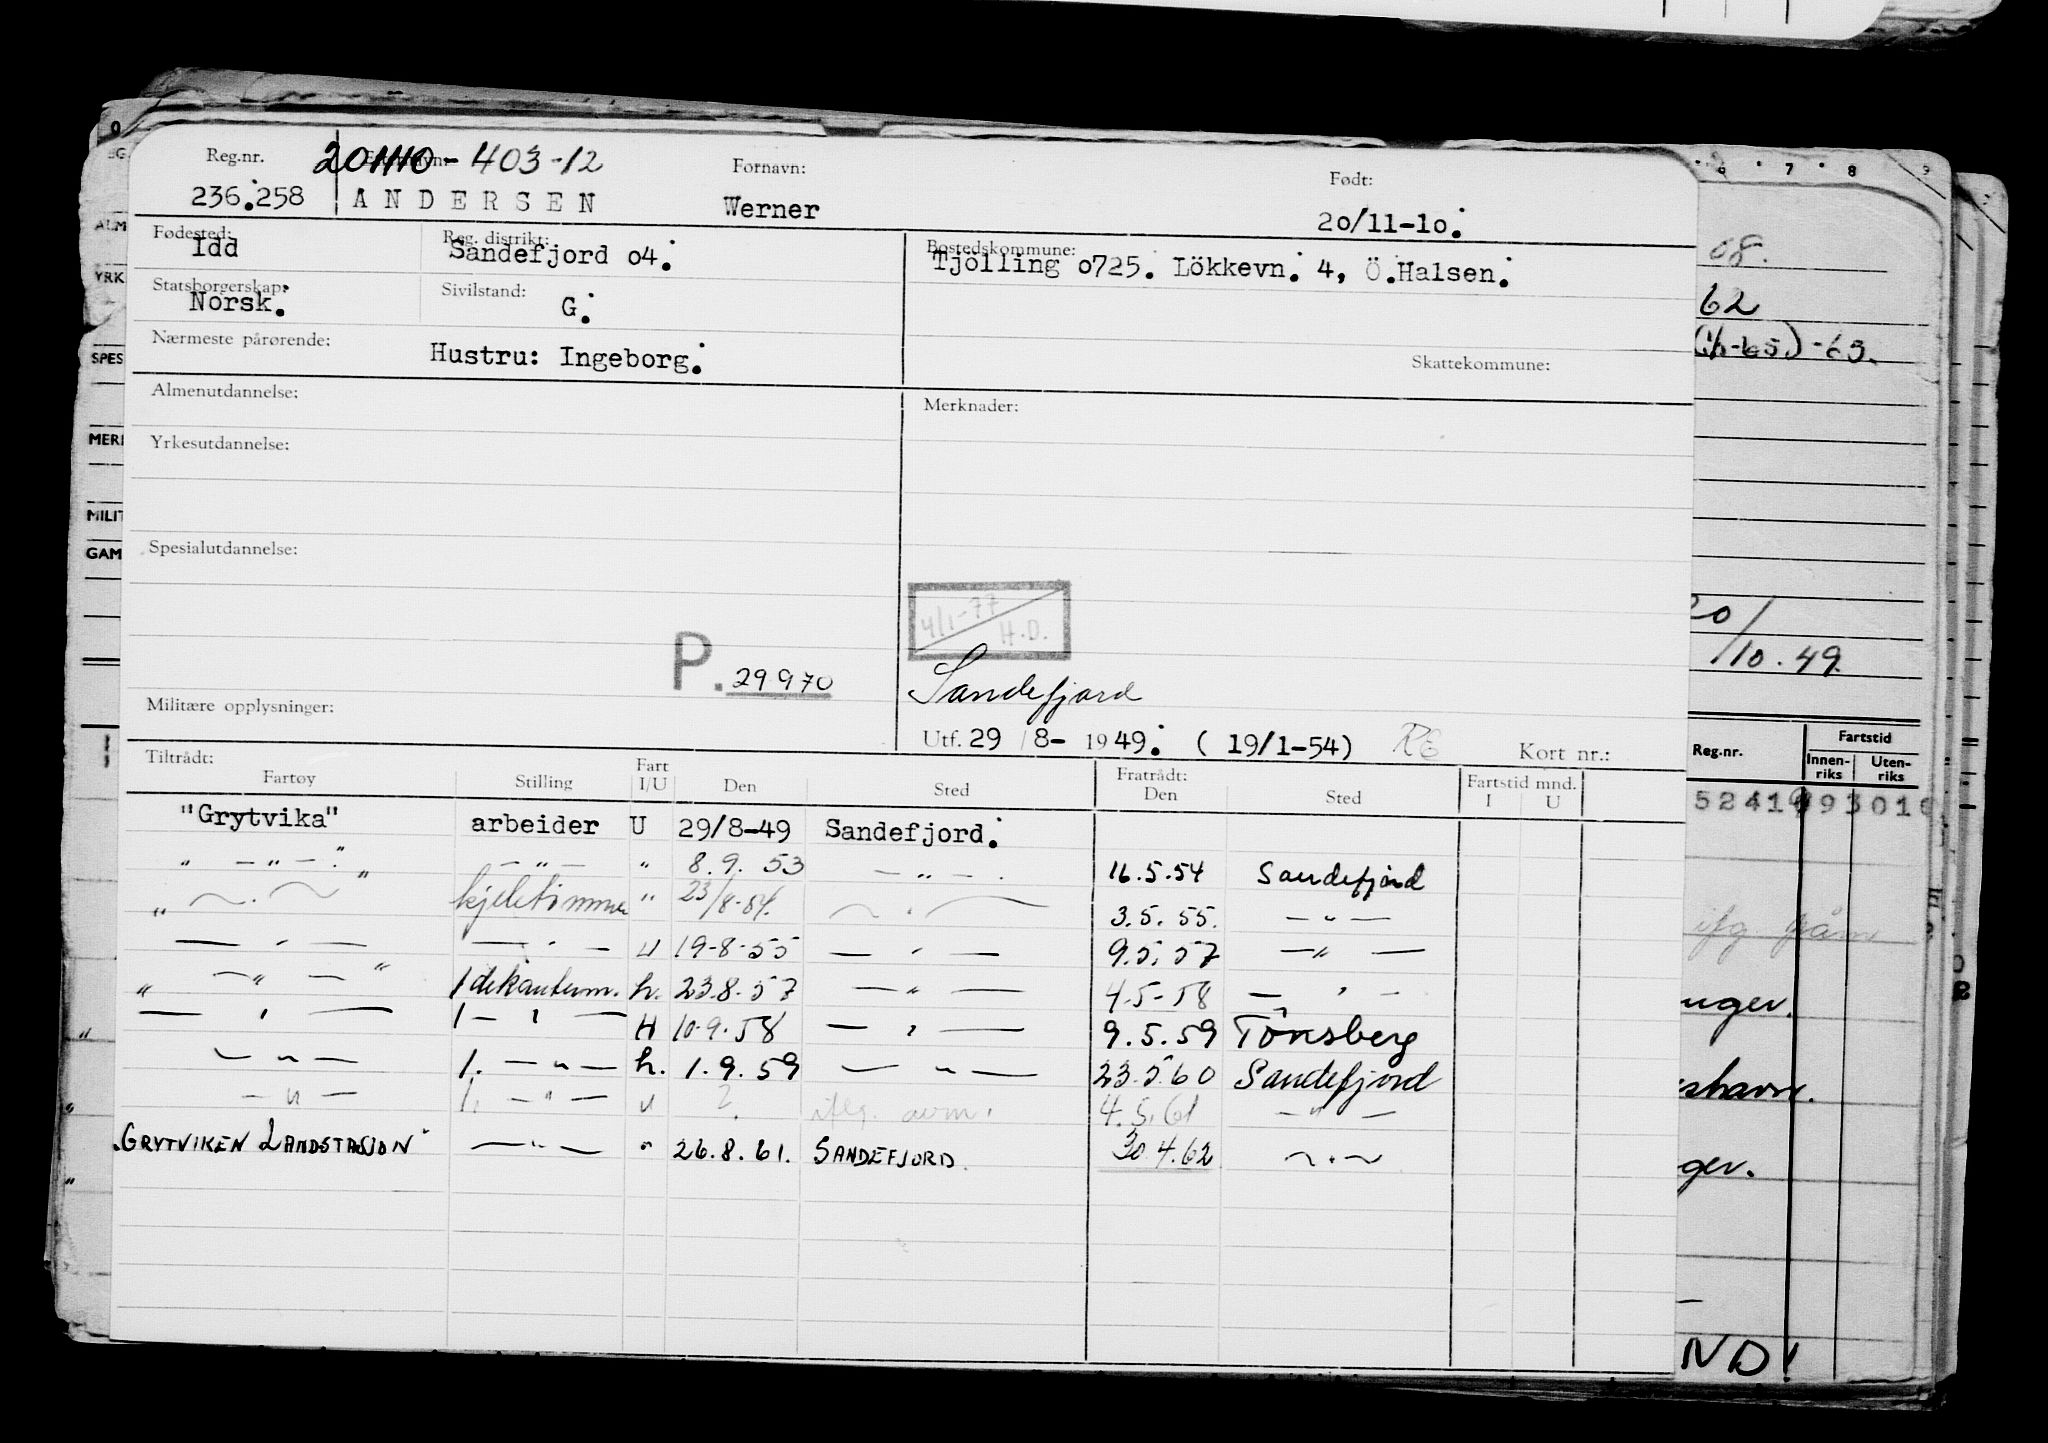 Reg.nr. 201110-403-12 Fornavn: Født:
236.258 ANDERSEN Werner 20/11-10.
Fødested: Idd Reg. distrikt: Sandefjord 04. Bostedskommune: Tjölling 0725. Lökkevn. 4, Ö.Halsen.
Statsborgerskap: Norsk. Sivilstand: G.
Nærmeste pårørende: Hustru: Ingeborg. Skattekommune:
Almenutdannelse: Merknader:
Yrkesutdannelse:
Spesialutdannelse:
4/1-77 H.D.
P. 29970 Sandefjord
Militære opplysninger: Utf. 29/8- 1949. (19/1-54) RE Kort nr.:
Tiltrådt: Fratrådt:
Fartøy Stilling Fart I/U Den Sted Den Sted Fartstid mnd. I U
"Grytvika" arbeider U 29/8-49 Sandefjord.
" — " — " — " — " 8.9.53 — " — 16.5.54 Sandefjord
" — " — " " 23/8-54. — " — 3.5.55. — " —
— " — — " — U 19-8-55 — " — 9.5.57 — " —
" — " — " h. 23.8.57 — " — 4.5-58 — " —
— " — 1 — " — H 10.9.58 — " — 9.5.59 Tönsberg
— " — 1. — " — h. 1.9.59 — " — 23.5.60 Sandefjord
— " — 1. — " — " ? iflg. avm. 4.5.61 — " —
"GRYTVIKEN LANDSTASJON" — " — " 26.8.61. SANDEFJORD 30.4.62 — " —
EG
ALM
YRK
SPES
MERI
MILIT
GAM
6 7 8 9
08.
62
-63.
20/10.49.
Reg.nr. Fartstid
Innenriks Utenriks
ifg.
uger.
shavn.
ger.
ND!